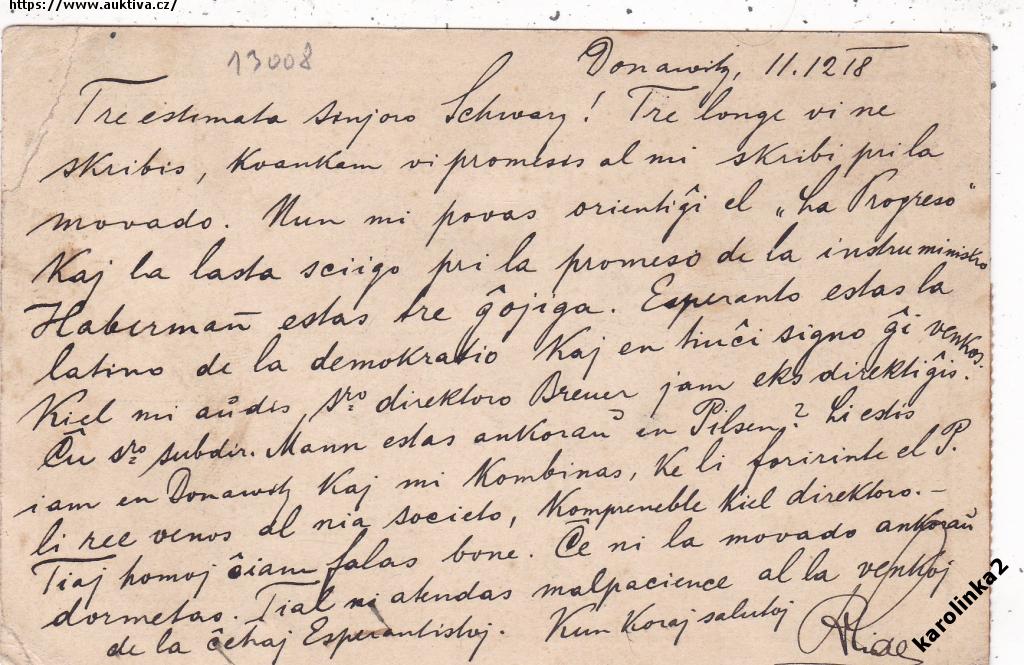 https://www.auktiva.cz/
13008
Donawitz, 11.12 18
Tre estimata sinjoro Schwarz! Tre longe vi ne
skribis, kvankam vi promesis al mi skribi pri la
movado. Nun mi povas orientiĝi el „La Progreso“
Kaj la lasta sciigo pri la promeso de la instruministro
Haberman̄ estas tre ĝojiga. Esperanto estas la
latino de la demokratio Kaj en tiuĉi signo ĝi venkos.
Kiel mi aŭdis, sro direktoro Breuer jam eksdirektiĝis.
Ĉu sro subdir. Mann estas ankoraŭ en Pilsen? Li estis
iam en Donawitz Kaj mi Kombinas, Ke li foririnte el P.
li ree venos al nia societo, Kompreneble Kiel direktoro.-
Tiaj homoj ĉiam falas bone. Ĉe ni la movado ankoraŭ
dormetas. Tial ni atendas malpacience al la venkoj
de la ĉeĥaj Esperantistoj. Kun Koraj salutoj
karolinka2